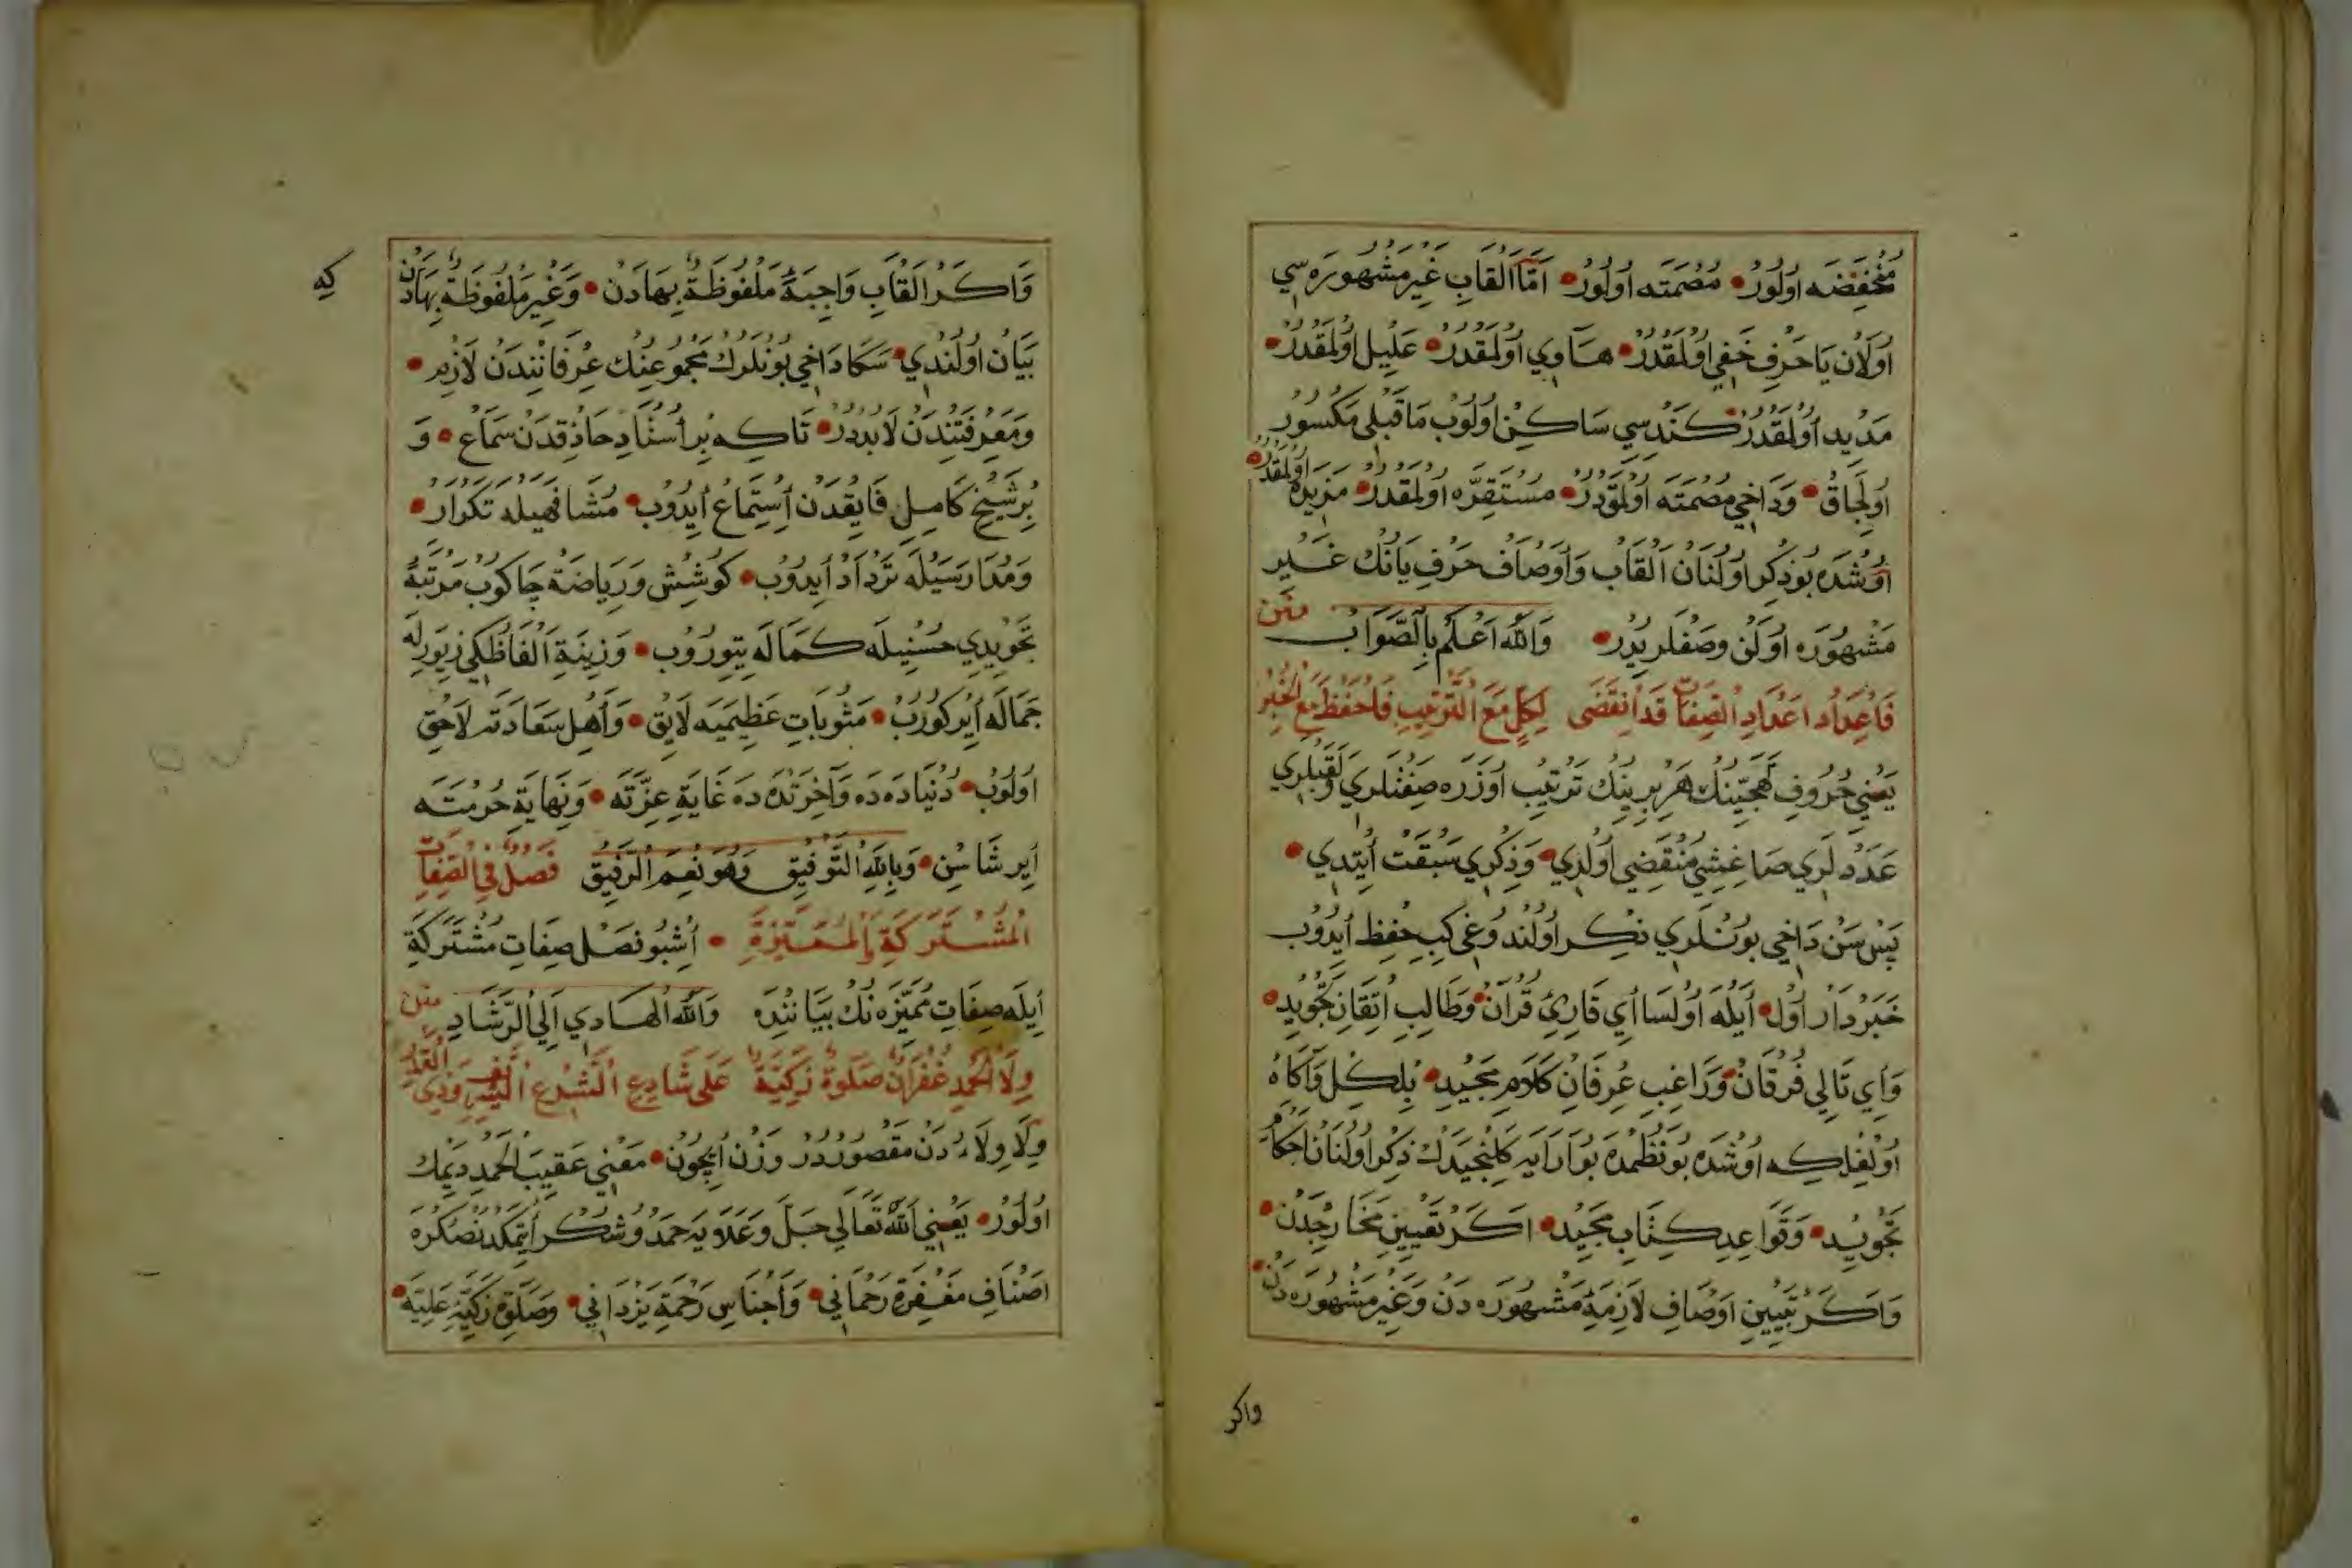 مُنْخَفِضَه اُولُورْ • مُصْمَتَه اُولُورْ • اَمَّا اَلْقَابِ غَيْرِ مَشْهُورَه سِي
اُولَانْ يَا حَرْفِ خَفِي اُولْمَقْدُرْ • هَاوِي اُولْمَقْدُرْ • عَلِيل اُولْمَقْدُرْ •
مَدِيد اُولْمَقْدُرْ • كَنْدِسِي سَاكِنْ اُولُوبْ مَا قَبْلِي مَكْسُورْ
اُولِجَاقْ • وَدَاخِي مُصْمَتَه اُولْمَقْدُرْ • مُسْتَقِرَّه اُولْمَقْدُرْ • مَزِيدَه اُولْمَقْدُرْ •
اُوشْدَه بُو ذِكْر اُولُنَانْ اَلْقَابْ وَاَوْصَافْ حَرْفِ يَانُكْ غَيْرِ
مَشْهُورَه اُولَنْ وَصْفْلَرِيدُرْ • وَاللّٰهُ اَعْلَمُ بِالصَّوَابْ متن
فَاعْدَادُ اَعْدَادِ الصِّفَاتِ قَدِ انْقَضَى لِكُلٍّ مَعَ التَّرْتِيبِ فَاحْفَظْ مَعَ الْخُبْرِ
يَعْنِي حُرُوفِ تَهَجِّينُكْ هَرْ بِرِينُكْ تَرْتِيبْ اُوزَرَه صِفَتْلَرِي وَلَقَبْلَرِي
عَدَدْلَرِي صَاغِشِي مُنْقَضِي اُولْدِي • وَذِكْرِي سَبْقَتْ اَيْتْدِي •
پَسْ سَنْ دَاخِي بُونْلَرِي ذِكْر اُولُنْدُوغِي كِبِي حِفْظ اَيْدُوبْ
خَبَرْدَارْ اُولْ • اَيْلَه اُولْسَا اَي قَارِئِ قُرْآنْ • وَطَالِبِ اِتْقَانِ تَجْوِيدْ •
وَاَي تَالِي فُرْقَانْ • وَرَاغِبِ عِرْفَانِ كَلَامِ مَجِيدْ • بِلْكِلْ وَآكَاهْ
اُولْغِلْ كِه اُوشْدَه بُو نَظْمْدَه بُو آرَايَه كَلِنْجَيَدَكْ ذِكْر اُولُنَانْ اَحْكَامِ
تَجْوِيدْ • وَقَوَاعِدِ كِتَابِ مَجِيدْ • اَكَرْ تَعْيِينِ مَخَارِجْدَنْ •
وَاَكَرْ تَبْيِينِ اَوْصَافِ لَازِمَهِٔ مَشْهُورَه دَنْ وَغَيْرِ مَشْهُورَه دَنْ •
واكر
كه
وَاَكَرْ اَلْقَابِ وَاجِبَهِٔ مَلْفُوظَةٌ بِهَادَنْ • وَغَيْرِ مَلْفُوظَةٌ بِهَادَنْ
بَيَانْ اُولُنْدِي • سَكَا دَاخِي بُونْلَرُكْ مَجْمُوعِنُكْ عِرْفَانِنْدَنْ لَازِمْ •
وَمَعْرِفَتِنْدَنْ لَابُدْدُرْ • تَا كِه بِرْ اُسْتَادِ حَاذِقْدَنْ سَمَاعْ • وَ
بِرْ شَيْخِ كَامِلِ فَايِقْدَنْ اِسْتِمَاعْ اَيْدُوبْ • مُشَافَهَيْلَه تَكْرَارْ •
وَمُدَارَسَيْلَه تَرْدَادْ اَيْدُوبْ • كُوشِشْ وَرِيَاضَةْ چَاكُوبْ مَرْتَبَهِٔ
تَجْوِيدِي حُسْنِيلَه كَمَالَه يِتُورُوبْ • وَزِينَةِ اَلْفَاظِكِي زِيوَرْلَه
جَمَالَه اَيْرْكُورُبْ • مَثُوبَاتِ عَظِيمَيَه لَايِقْ • وَاَهْلِ سَعَادَتَه لَاحِقْ
اُولُوبْ • دُنْيَادَه دَه وَآخِرَتْدَه دَه غَايَةِ عِزَّتَه • وَنِهَايَةِ حُرْمَتَه
اَيْرِشَاسِنْ • وَبِاللّٰهِ التَّوْفِيقْ وَهُوَ نِعْمَ الرَّفِيقْ فَصْلٌ فِي الصِّفَاتِ
الْمُشْتَرَكَةِ بِالْمُمَيِّزَةِ • اُشْبُو فَصْل صِفَاتِ مُشْتَرَكَةِ
اَيْلَه صِفَاتِ مُمَيِّزَه نُكْ بَيَانِنْدَه وَاللّٰهُ الْهَادِي اِلَي الرَّشَادِ متن
وِلَا الْحَمْدِ غُفْرَانٌ صَلٰوةٌ زَكِيَّةٌ عَلَى شَارِعِ الشَّرْعِ الشَّرِيفِ وَذِي الْقَدْرِ
وِلَا وِلَاءْ دَنْ مَقْصُورْدُرْ وَزْنْ اَيْچُونْ • مَعْنِي عَقِيبَ الْحَمْدِ دِيمَكْ
اُولُورْ • يَعْنِي اَللّٰه تَعَالَي جَلَّ وَعَلَايَه حَمْدُ وَشُكْر اَيْتْمَكْدَنْصُكْرَه
اَصْنَافِ مَغْفِرَةِ رَحْمَانِي • وَاَجْنَاسِ رَحْمَةِ يَزْدَانِي • وَصَلَوةِ زَكِيَّهِٔ عَلِيَّه •